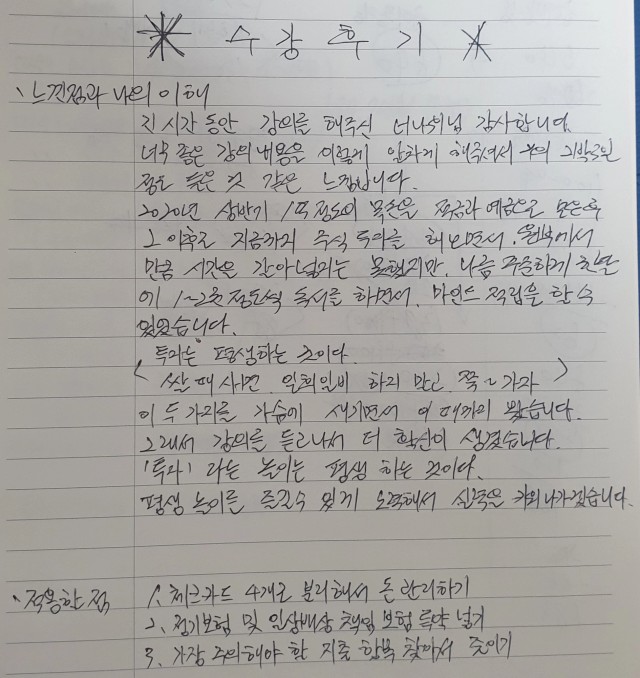 수강후기
느낀점과 나의 이해
긴 시간 동안 강의를 해주신 너나위님 감사합니다.
너무 좋은 강의 내용을 이렇게 알차게 해주셔서 거의 2박3일
정도 들은 것 같은 느낌입니다.
2020년 상반기 1억 정도의 목돈을 적금과 예금으로 모은 후
그 이후로 지금까지 주식 투자를 해 보면서,
만큼 시간은 갈아넣지는 못했지만, 나름 꾸준하게 한달
에 1~2권 정도씩 독서를 하면서, 마인드 적립을 할 수
있었습니다.
투자는 평생하는 것이다.
쌀 때 사면 일희일비 하지 말고 쭉~ 가자
이 두가지를 가슴에 새기면서 여태까지 왔습니다.
그래서 강의를 듣고나서 더 확신이 생겼습니다.
'투자' 라는 놀이는 평생 하는 것이다.
평생 놀이를 즐길수 있게 노력해서 실력을 키워 나가겠습니다.
적용할 점
1. 체크카드 4개로 분리해서 돈 관리하기
2. 정기보험 및 일상배상 책임 보험 특약 넣기
3. 가장 주의해야 할 지출 항목 찾아서 줄이기